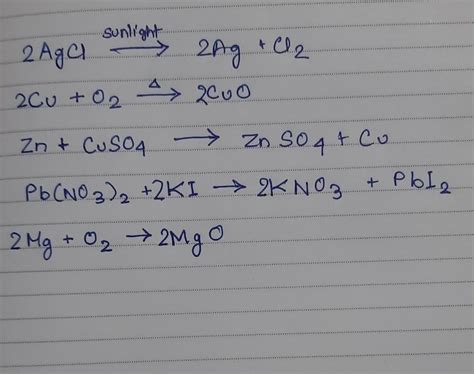 2AgCl sunlight → 2Ag + Cl2
2Cu + O2 Δ → 2CuO
Zn + CuSO4 → ZnSO4 + Cu
Pb(NO3)2 + 2KI → 2KNO3 + PbI2
2Mg + O2 → 2MgO